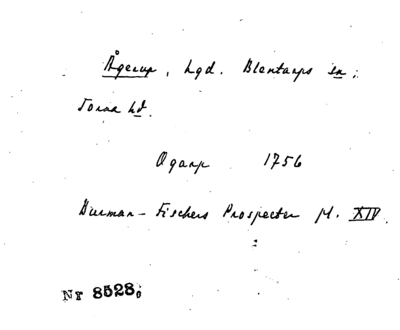 Ågerup, hgd. Blentarps sn.
Torna hd.
Ogarp 1756
Burman-Fischers Prospecter pl. XIV.
Nr 8528.